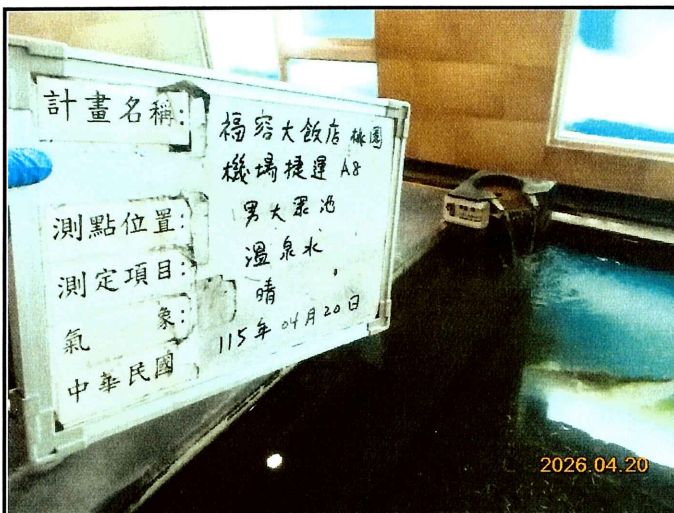 計畫名稱: 福容大飯店 桃園
機場捷運 A8
測點位置: 男大眾池
測定項目: 溫泉水
氣象: 晴
中華民國 115年 04月 20日
2026.04.20